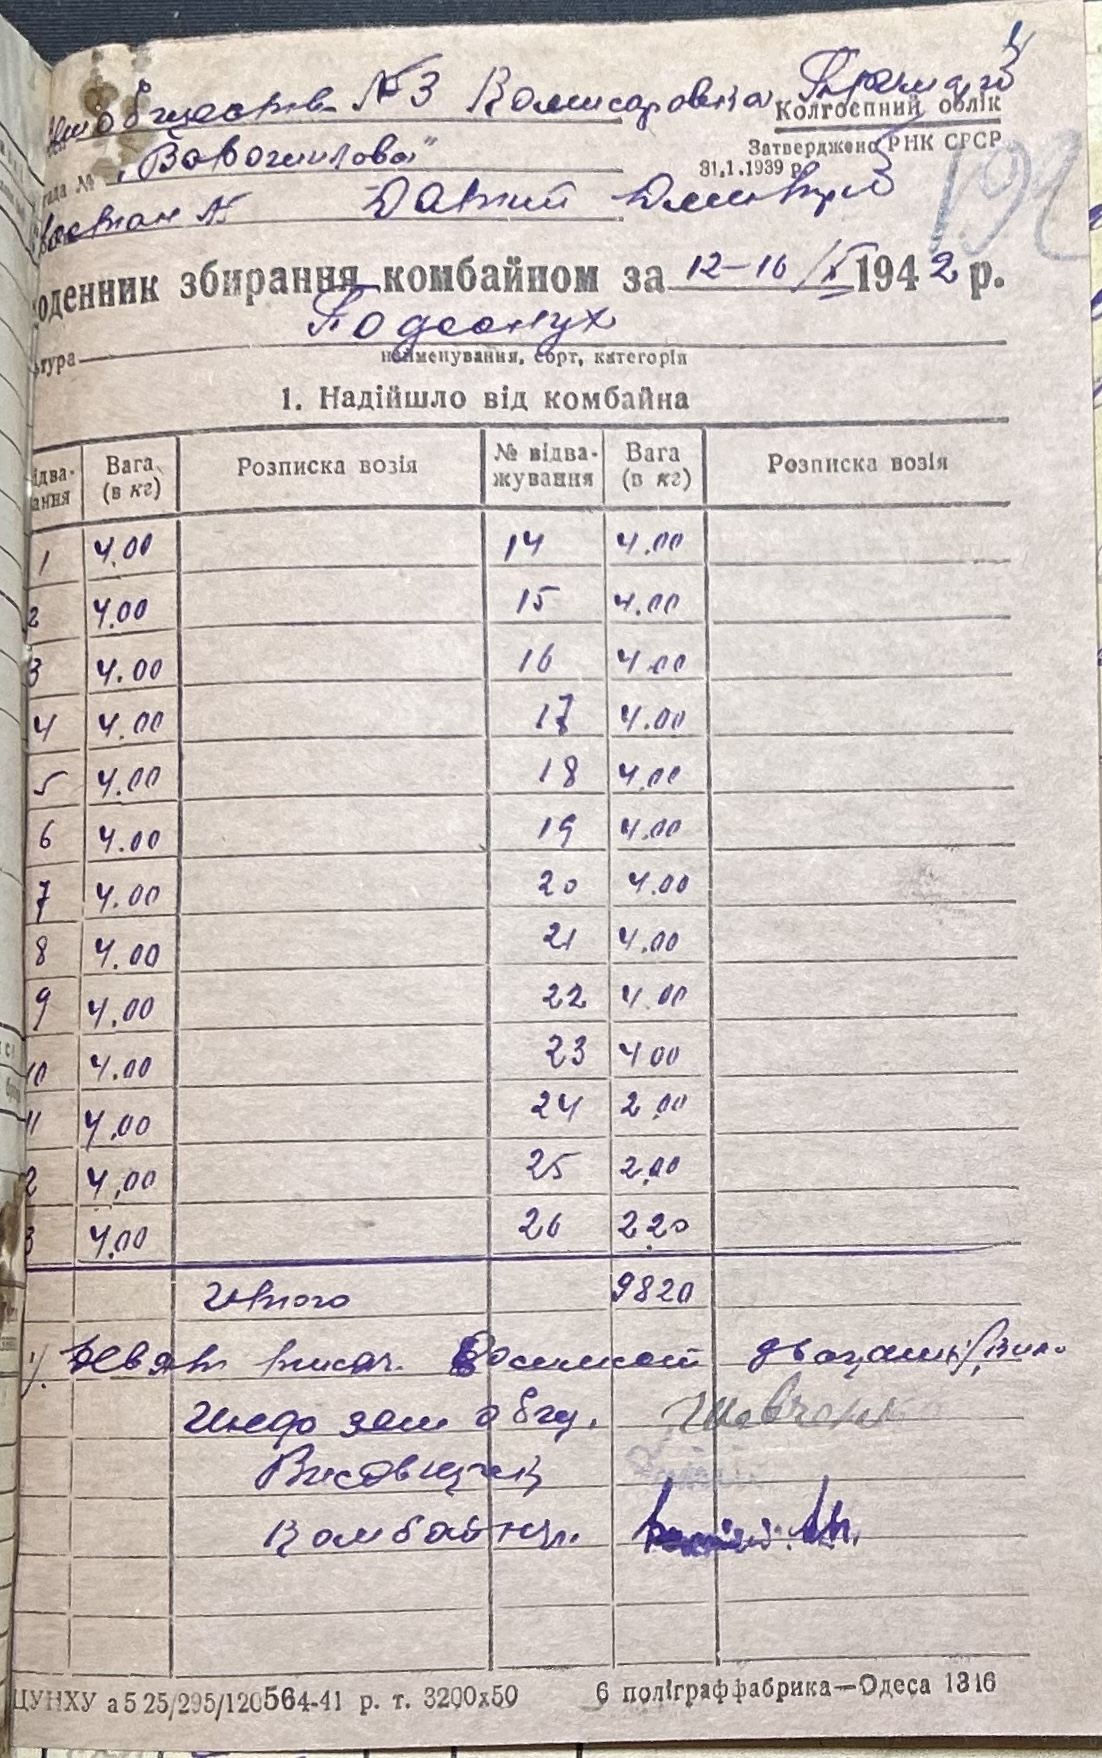 №3 Комисаровка
Колгоспний облік
Затверджено РНК СРСР
31.1.1939 р.
№
192
№ Дмитрий
оденник збирання комбайном за 12-16/X 1942 р.
тура Подсолнух
найменування, сорт, категорія
1. Надійшло від комбайна
ідва- Вага Розписка возія № відва- Вага Розписка возія
ання (в кг) жування (в кг)
1 4.00 14 4.00
2 4.00 15 4.00
3 4.00 16 4.00
4 4.00 17 4.00
5 4.00 18 4.00
6 4.00 19 4.00
7 4.00 20 4.00
8 4.00 21 4.00
9 4.00 22 4.00
10 4.00 23 400
11 4.00 24 2.00
2 4,00 25 2.00
3 4.00 26 2.20
Итого 9820
Девять тисяч. Восимсот двацать
зем общ. Шевченко
Висовщик
Комбайнер.
ЦУНХУ а525/295/120564-41 р. т. 3200х50 6 поліграффабрика—Одеса 1316